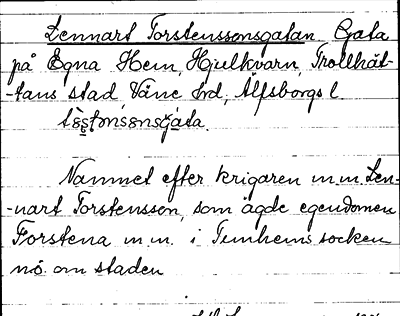 Lennart Torstenssonsgatan Gata
på Egna Hem, Hjulkvarn, Trollhät-
-tans stad, Väne hd, Älfsborgs l.
Namnet efter krigaren m.m. Len-
-nart Torstensson, som ägde egendomen
Forstena m.m. i Tunhems socken
nö. om staden